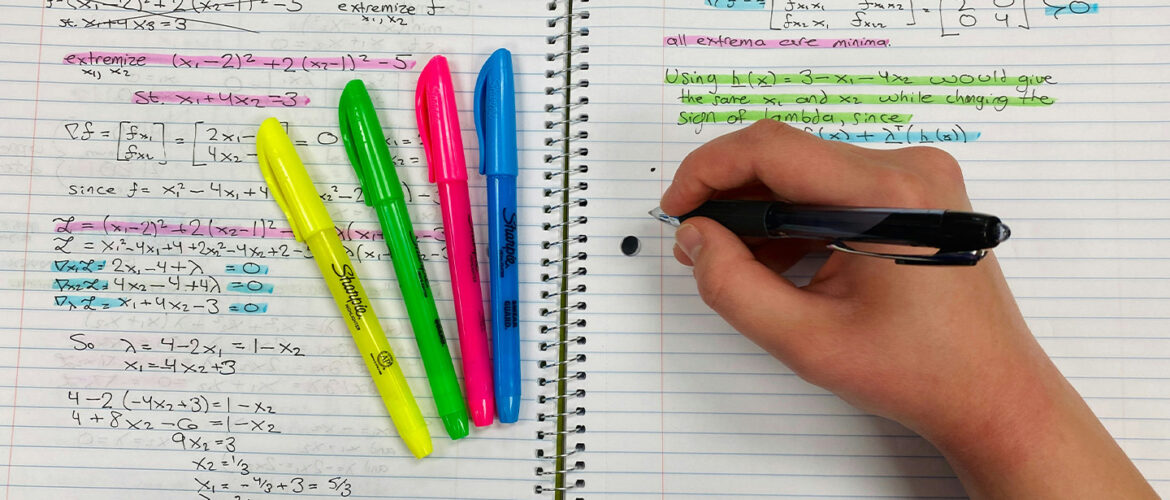 extremize f
x₁, x₂
st. x₁+4x₃=3
extremize (x₁-2)²+2(x₂-1)²-5
x₁, x₂
st. x₁+4x₂=3
∇f = [fx₁ fx₂] = [2x₁- 4x₂- = 0
since f= x₁²-4x₁+4
ℒ = (x₁-2)²+2(x₂-1)²-
ℒ = x₁²-4x₁+4+2x₂²-4x₂+2-
∇x₁ℒ= 2x₁-4+λ =0
∇x₂ℒ= 4x₂-4+4λ =0
∇λℒ= x₁+4x₂-3 =0
So λ=4-2x₁=1-x₂
x₁=-4x₂+3
4-2(-4x₂+3)=1-x₂
4+8x₂-6=1-x₂
9x₂=3
x₂=1/3
x₁=-4/3+3=5/3
Sharpie
Sharpie
[fx₁x₁ fx₁x₂ fx₂x₁ fx₂x₂] = [2 0 0 4] >0
all extrema are minima.
Using h(x)=3-x₁-4x₂ would give
the same x₁ and x₂ while changing the
sign of lambda, since
f(x)+λᵀ(h(x))